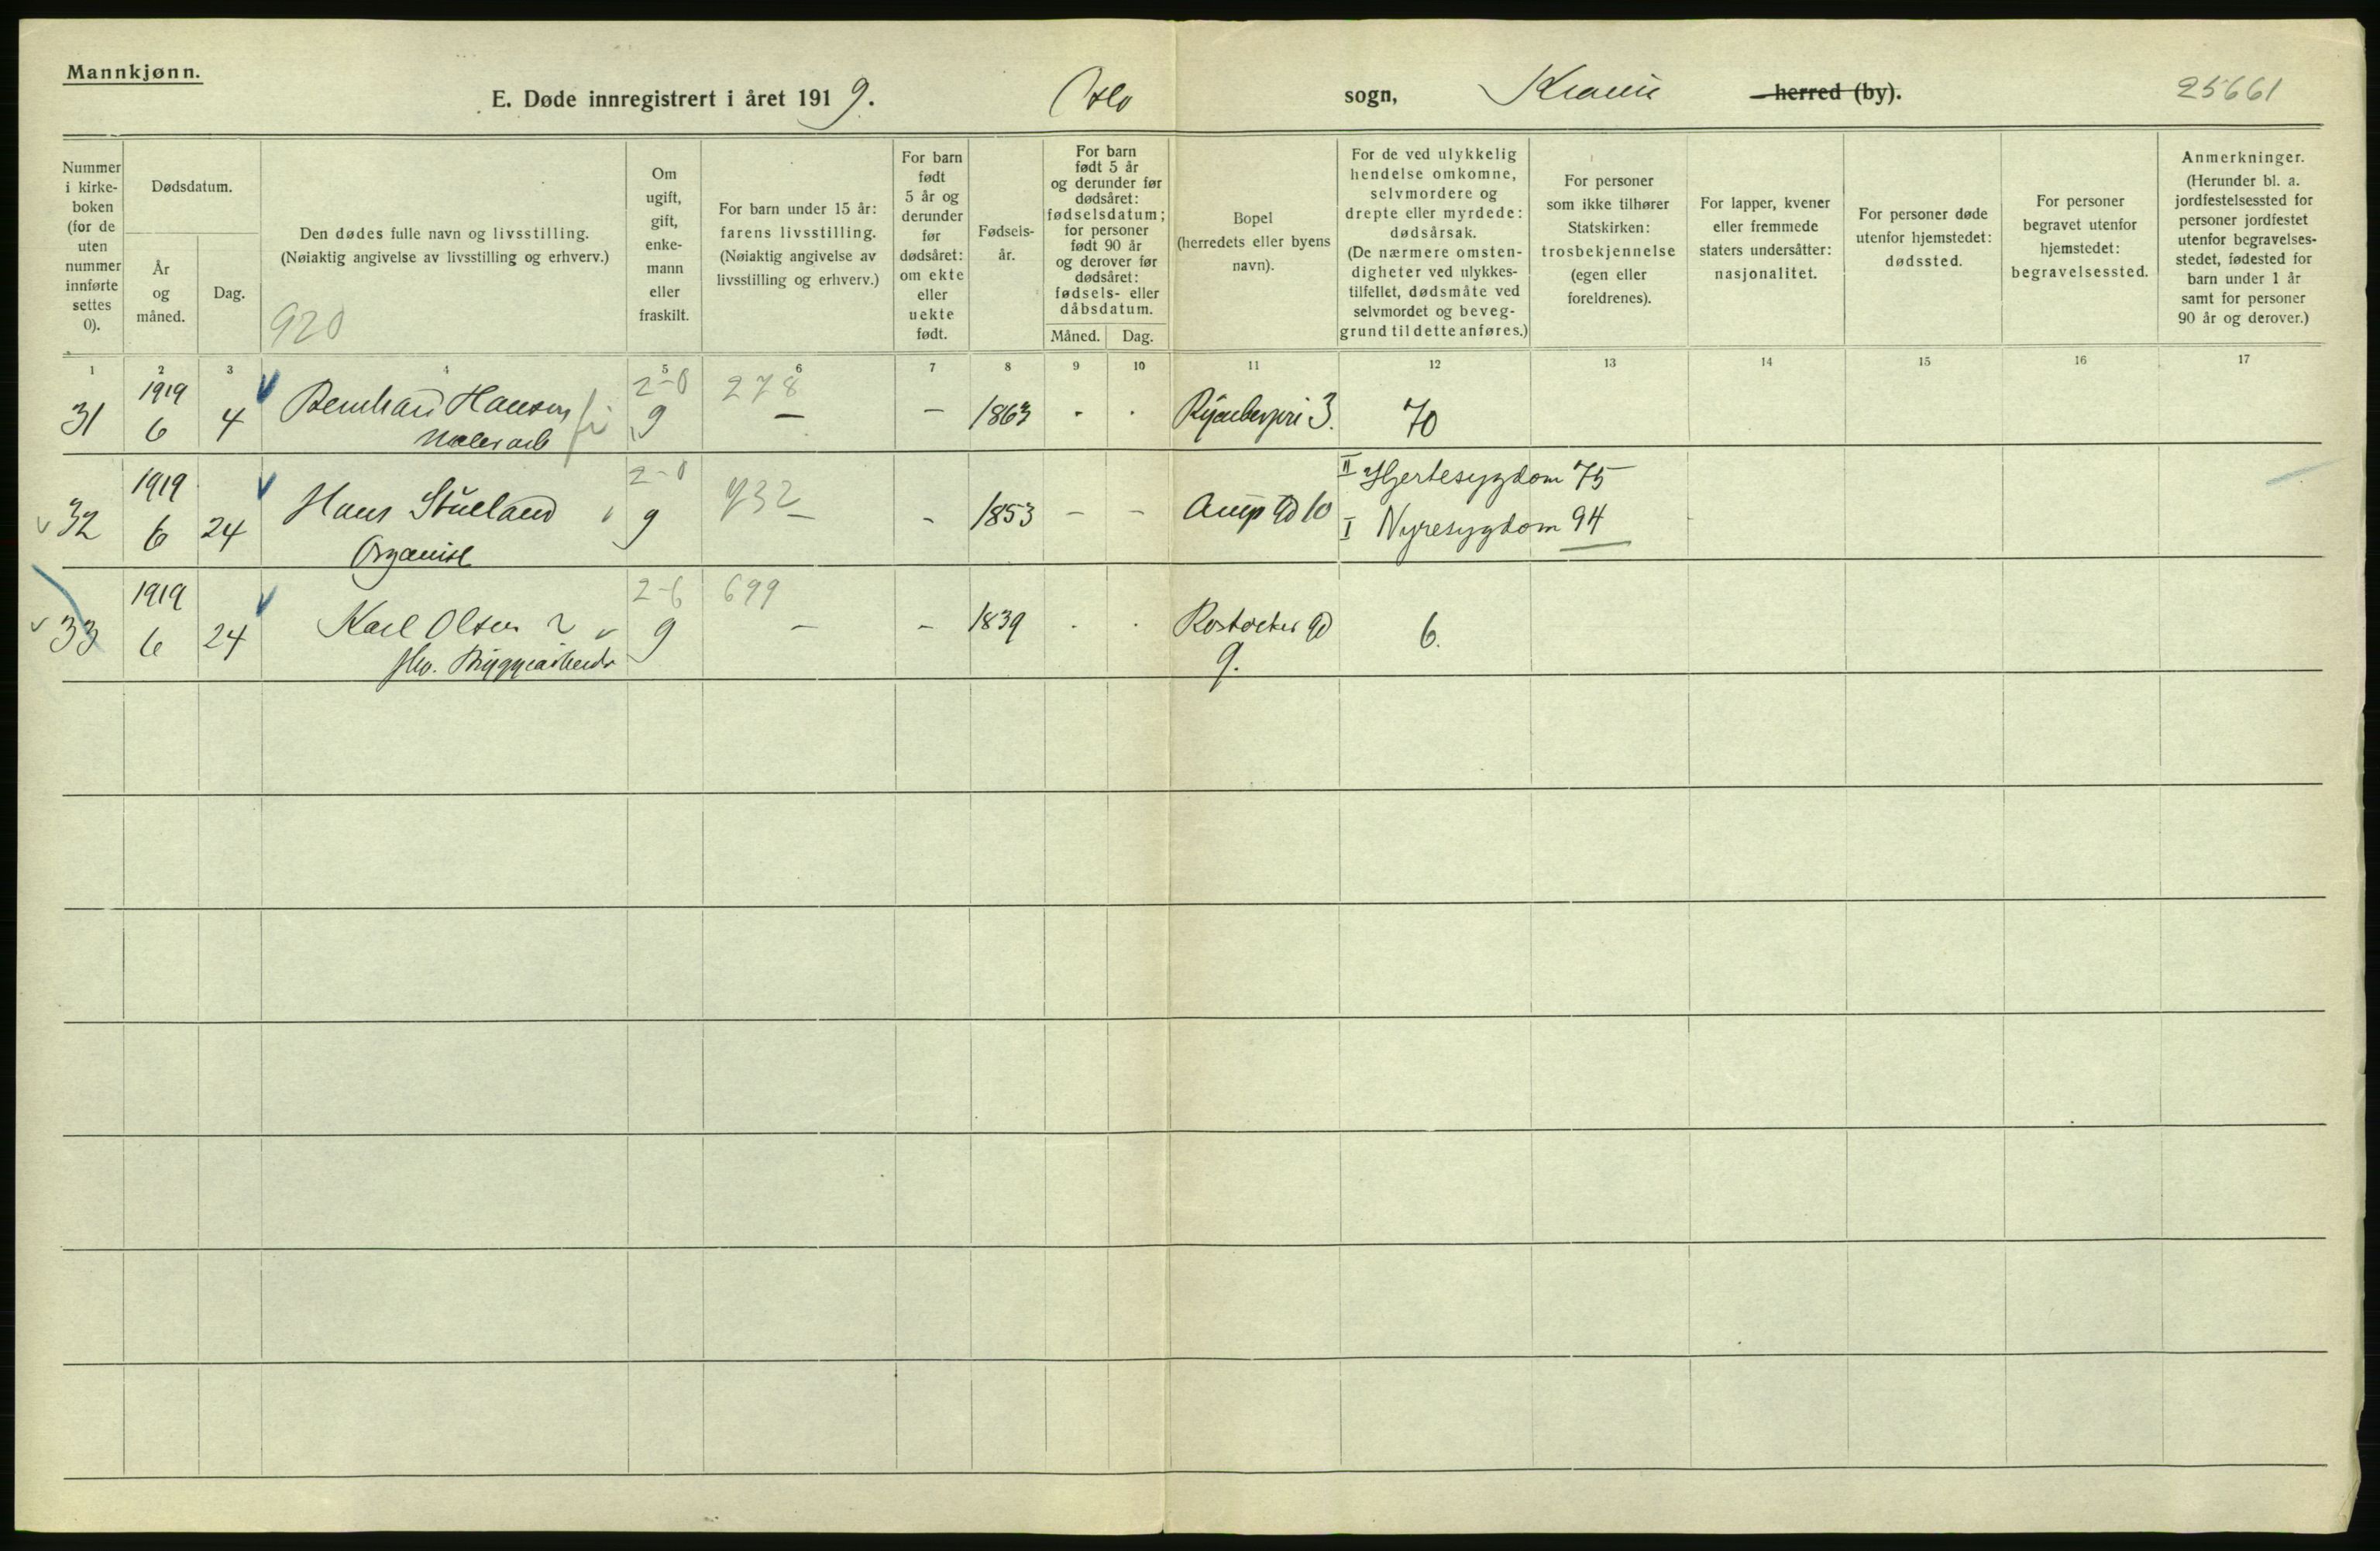 Mannkjønn.
E. Døde innregistrert i året 1919. Oslo sogn, herred (by). 25661
Nummer i kirke-boken (for de uten nummer innførte settes 0).
Dødsdatum.
År og måned.
Dag.
Den dødes fulle navn og livsstilling.
(Nøiaktig angivelse av livsstilling og erhverv.)
920
Om ugift, gift, enke-mann eller fraskilt.
For barn under 15 år:
farens livsstilling.
(Nøiaktig angivelse av livsstilling og erhverv.)
For barn født 5 år og derunder før dødsåret: om ekte eller uekte født.
Fødsels-år.
For barn født 5 år og derunder før dødsåret: fødselsdatum; for personer født 90 år og derover før dødsåret: fødsels- eller dåbsdatum.
Måned.
Dag.
Bopel
(herredets eller byens navn).
For de ved ulykkelig hendelse omkomne, selvmordere og drepte eller myrdede: dødsårsak.
(De nærmere omsten-digheter ved ulykkes-tilfellet, dødsmåte ved selvmordet og beveg-grund til dette anføres.)
For personer som ikke tilhører Statskirken: trosbekjennelse (egen eller foreldrenes).
For lapper, kvener eller fremmede staters undersåtter: nasjonalitet.
For personer døde utenfor hjemstedet: dødssted.
For personer begravet utenfor hjemstedet: begravelsessted.
Anmerkninger.
(Herunder bl. a. jordfestelsessted for personer jordfestet utenfor begravelses-stedet, fødested for barn under 1 år samt for personer 90 år og derover.)
1 2 3 4 5 6 7 8 9 10 11 12 13 14 15 16 17
1919 2-0 278
31 6 4 Bernhard Hansen g – – 1863 3. 70
1919 2-0 932 II Hjertesygdom 75
32 6 24 Hans Stueland g – – 1853 – – 10 I Nyresygdom 94
Organist
1919 2-6 699
33 6 24 Karl Olsen g – – 1839 Rostocker gd 6.
Bryggearbeider 9.